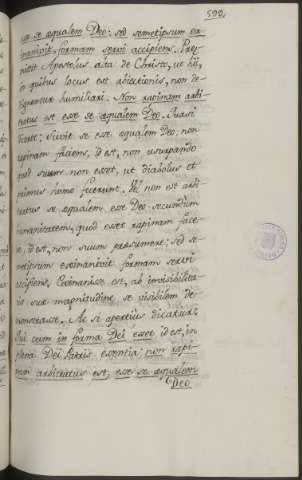 599.
esse se æqualem Deo: sed semetipsum ex-
inanivit, formam servi accipiens. Præ-
mittit Apostolus alta de Christo, ut hi,
in quibus locus est abiectionis, non de-
dignentur humiliari. Non rapinam arbi-
tratus est esse se æqualem Deo. Quasi
dicat: scivit se esse æqualem Deo, non
rapinam faciens, id est, non usurpando
quod suum non esset, ut diabolus et
primus homo fecerunt. Vel non est arbi-
tratus se æqualem esse Deo secundum
humanitatem, quod esset rapinam face-
re, id est, non suum præsumere: sed se-
metipsum exinanivit formam servi
accipiens. Exinanitus est, ab invisibilita-
te suæ magnitudinis se visibilem de-
monstrasse. Ac si apertius dicatur:
Qui cum in forma Dei esset, id est, in
plena Dei Patris essentia; non rapi-
nam arbitratus est, esse se æqualem
Deo